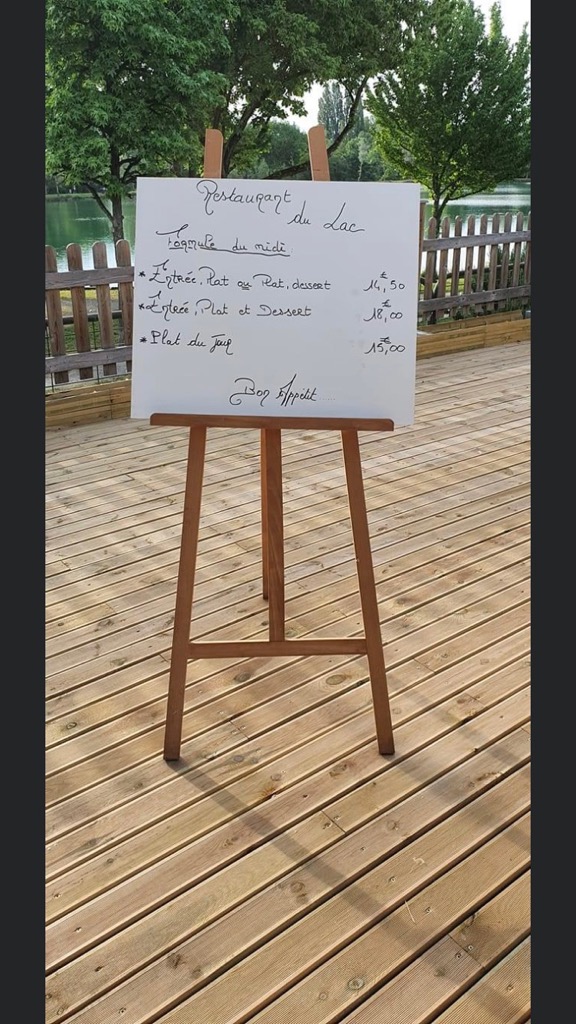 Restaurant du Lac
Formule du midi
* Entrée, Plat ou Plat, dessert 14,50 €
* Entrée, Plat et Dessert 18,00 €
* Plat du Jour 15,00 €
Bon Appétit......